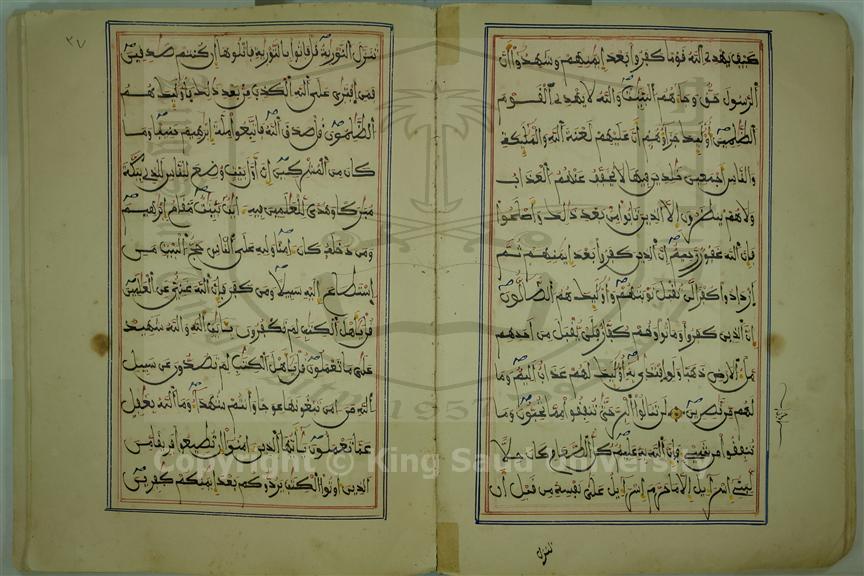 كيف يهدى الله قوما كفروا بعد ايمنهم وشهدوا أن
الرسول حق وجاءهم البينت والله لا يهدى القوم
الظلمين أوليك جزاؤهم أن عليهم لعنة الله والمليكة
والناس أجمعين خلدين فيها لا يخفف عنهم العذاب
ولا هم ينظرون إلا الذين تابوا من بعد ذلك وأصلحوا
فإن الله غفور رحيم إن الذين كفروا بعد ايمنهم ثم
ازدادوا كفرا لن تقبل توبتهم وأوليك هم الضالون
ان الذين كفروا وماتوا وهم كفار فلن يقبل من أحدهم
ملء الارض ذهبا ولو افتدى به أوليك لهم عذاب اليم وما
لهم من نصرين لن تنالوا البر حتى تنفقوا مما تحبون وما
تنفقوا من شىء فإن الله به عليم كل الطعام كان حلا
لبنى إسراءيل إلا ما حرم اسراءيل على نفسه من قبل أن
تنزل
٣٧
تنزل التورية قل فاتوا بالتورية فاتلوها إن كنتم صدقين
فمن افترى على الله الكذب من بعد ذلك فأوليك هم
الظلمون قل صدق الله فاتبعوا ملة إبرهيم حنيفا وما
كان من المشركين إن أول بيت وضع للناس للذى ببكة
مبركا وهدى للعلمين فيه ايت بينت مقام إبرهيم
ومن دخله كان امنا ولله على الناس حج البيت من
إستطاع إليه سبيلا ومن كفر فإن الله غنى عن العلمين
قل يأهل الكتب لم تكفرون بئايت الله والله شهيد
على ما تعملون قل يأهل الكتب لم تصدون عن سبيل
الله من امن تبغونها عوجا وأنتم شهداء وما الله بغفل
عما تعملون يأيها الذين امنوا إن تطيعوا فريقا من
الذين أوتوا الكتب يردوكم بعد إيمنكم كفرين
Copyright © King Saud University
1957